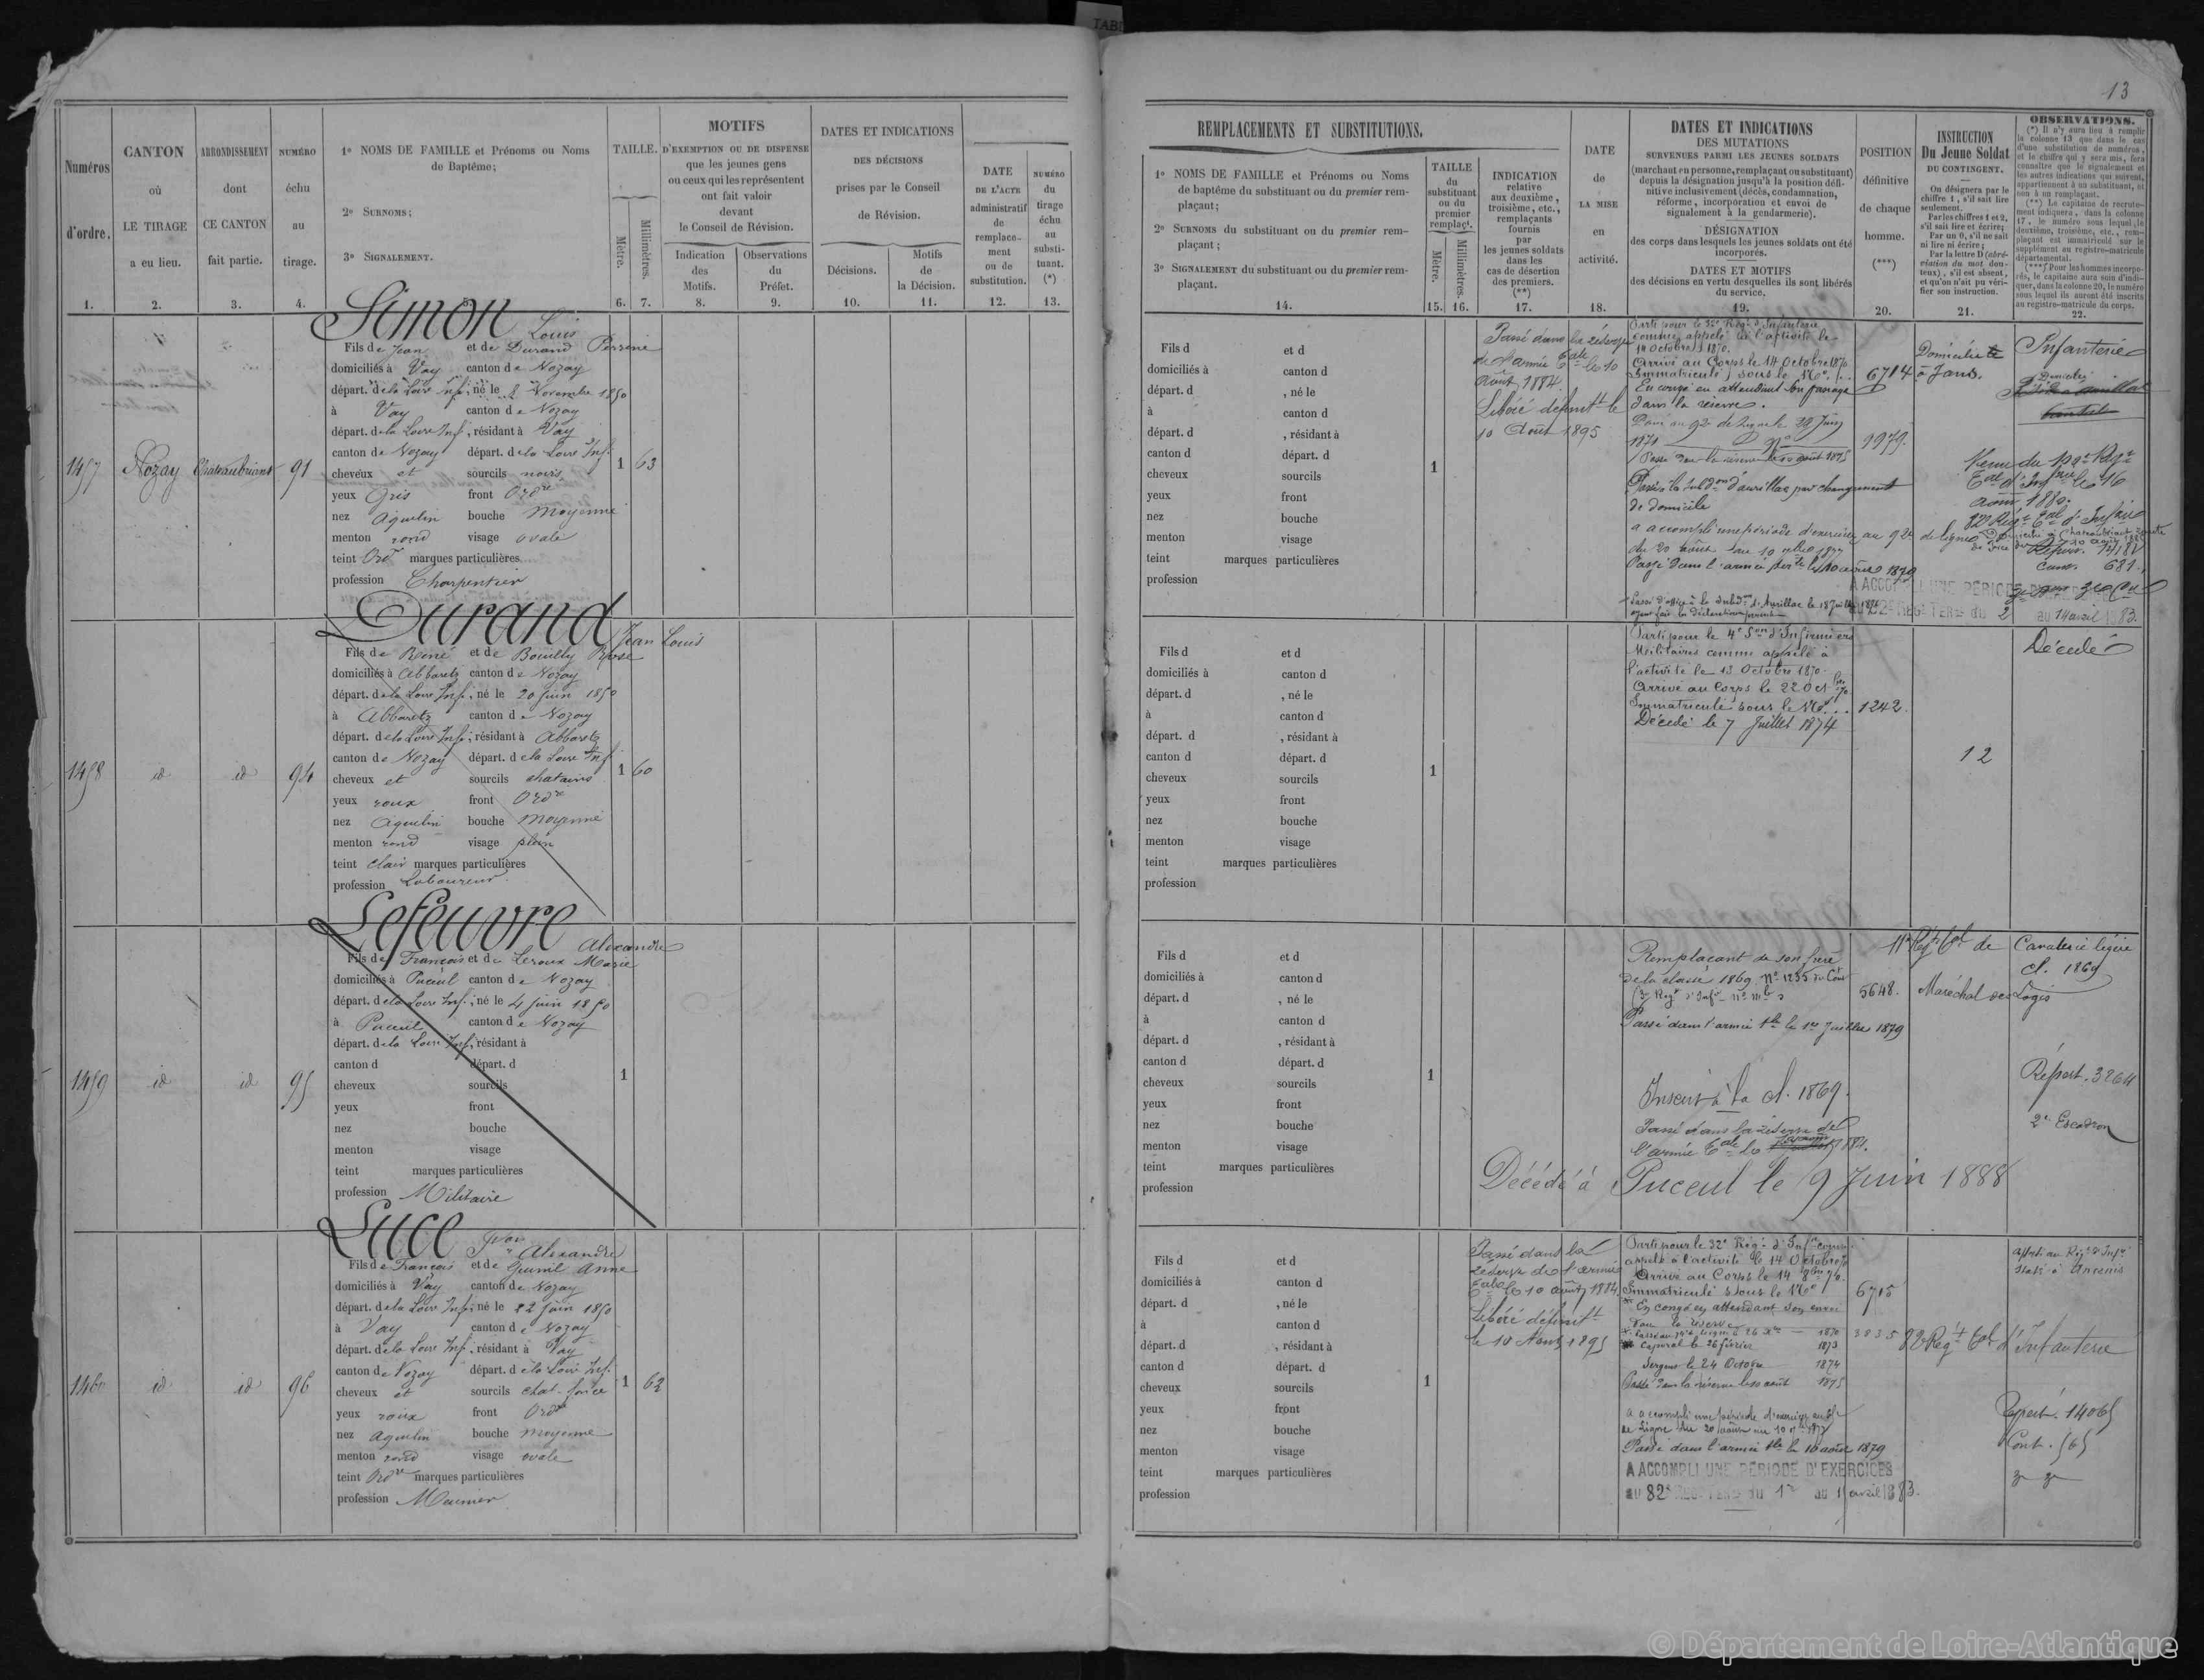 TABL
13
Numéros
d'ordre.
1.
CANTON
où
LE TIRAGE
a eu lieu.
2.
ARRONDISSEMENT
dont
CE CANTON
fait partie.
3.
NUMÉRO
échu
au
tirage.
4.
1º NOMS DE FAMILLE et Prénoms ou Noms
de Baptême;
2º SURNOMS;
3º SIGNALEMENT.
TAILLE.
Mètre.
Millimètres.
6. 7.
MOTIFS
D'EXEMPTION OU DE DISPENSE
que les jeunes gens
ou ceux qui les représentent
ont fait valoir
devant
le Conseil de Révision.
Indication
des
Motifs.
8.
Observations
du
Préfet.
9.
DATES ET INDICATIONS
DES DÉCISIONS
prises par le Conseil
de Révision.
Décisions.
10.
Motifs
de
la Décision.
11.
DATE
DE L'ACTE
administratif
de
remplace-
ment
ou de
substitution.
12.
NUMÉRO
du
tirage
échu
au
substi-
tuant.
(*)
13.
REMPLACEMENTS ET SUBSTITUTIONS.
1º NOMS DE FAMILLE et Prénoms ou Noms
de baptême du substituant ou du premier rem-
plaçant;
2º SURNOMS du substituant ou du premier rem-
plaçant;
3º SIGNALEMENT du substituant ou du premier rem-
plaçant.
14.
TAILLE
du
substituant
ou du
premier
remplaçt.
Mètre.
Millimètres.
15. 16.
INDICATION
relative
aux deuxième,
troisième, etc.,
remplaçants
fournis
par
les jeunes soldats
dans les
cas de désertion
des premiers.
(**)
17.
DATE
de
LA MISE
en
activité.
18.
DATES ET INDICATIONS
DES MUTATIONS
SURVENUES PARMI LES JEUNES SOLDATS
(marchant en personne, remplaçant ou substituant)
depuis la désignation jusqu'à la position défi-
nitive inclusivement (décès, condamnation,
réforme, incorporation et envoi de
signalement à la gendarmerie).
DÉSIGNATION
des corps dans lesquels les jeunes soldats ont été
incorporés.
DATES ET MOTIFS
des décisions en vertu desquelles ils sont libérés
du service.
19.
POSITION
définitive
de chaque
homme.
(***)
20.
INSTRUCTION
Du Jeune Soldat
DU CONTINGENT.
On désignera par le
chiffre 1, s'il sait lire
seulement.
Par les chiffres 1 et 2,
s'il sait lire et écrire;
Par un 0, s'il ne sait
ni lire ni écrire;
Par la lettre D (abré-
viation du mot dou-
teux), s'il est absent,
et qu'on n'ait pu véri-
fier son instruction.
21.
OBSERVATIONS.
(*) Il n'y aura lieu à remplir
la colonne 13 que dans le cas
d'une substitution de numéros,
et le chiffre qui y sera mis, fera
connaître que le signalement et
les autres indications qui suivent,
appartiennent à un substituant, et
non à un remplaçant.
(**) Le capitaine de recrute-
ment indiquera, dans la colonne
17, le numéro sous lequel le
deuxième, troisième, etc., rem-
plaçant est immatriculé sur le
supplément au registre-matricule
départemental.
(***) Pour les hommes incorpo-
rés, le capitaine aura soin d'indi-
quer, dans la colonne 20, le numéro
sous lequel ils auront été inscrits
au registre-matricule du corps.
22.
1457 Nozay Chateaubriant 91
Simon Louis
Fils de Jean et de Durand Perrine
domiciliés à Vay canton de Nozay
départ. de la Loire Inf.; né le 2 Novembre 1850
à Vay canton de Nozay
départ. de la Loire Inf., résidant à Vay
canton de Nozay départ. de la Loire Inf.
cheveux et sourcils noirs
yeux Gris front Ordre
nez Aquilin bouche Moyenne
menton rond visage ovale
teint Ord marques particulières
profession Charpentier
1 63
Fils d et d
domiciliés à canton d
départ. d , né le
à canton d
départ. d , résidant à
canton d départ. d
cheveux sourcils
yeux front
nez bouche
menton visage
teint marques particulières
profession
1
Passé dans la réserve
de l'armée Tale le 10
Août 1884.
Libéré définitt le
10 Août 1895
Parti pour le 32e Régt d'Infanterie
comme appelé à l'activité le
14 Octobre 1870.
Arrivé au Corps le 14 Octobre 1870
Immatriculé sous le No...
En congé en attendant son passage
dans la réserve.
Passé au 92e de ligne le 29 Juin
1871 No
Passé dans la réserve le 10 août 1875
Passé à la Subdon d'aurillac par changement
de domicile
a accompli une période d'exercices au 92e de ligne
du 20 août au 10 7bre 1877
Passé dans l'armée terrle le 10 août 1879
Passé d'office à la Subdon d'Aurillac le 18 juillet
6714
1979.
Domicilié
à Jans.
Infanterie
Venu du 129e Régt
Tal d'Infrie le 16
Août 1880.
82e Régt Tal d'Infrie
Cont. 681.
A ACCOMPLI UNE PÉRIODE
AU 82e REGt TERal du 2 au 14 avril 1883.
1458 id id 94
Durand Jean Louis
Fils de René et de Bouilly Rose
domiciliés à Abbaretz canton de Nozay
départ. de la Loire Inf.; né le 20 juin 1850
à Abbaretz canton de Nozay
départ. de la Loire Inf.; résidant à Abbaretz
canton de Nozay départ. de la Loire Inf
cheveux et sourcils chatains
yeux roux front Ordre
nez Aquilin bouche Moyenne
menton rond visage plein
teint clair marques particulières
profession Laboureur.
1 60
Fils d et d
domiciliés à canton d
départ. d , né le
à canton d
départ. d , résidant à
canton d départ. d
cheveux sourcils
yeux front
nez bouche
menton visage
teint marques particulières
profession
1
Parti pour le 4e Son d'Infirmiers
Militaires comme appelé à
l'activité le 13 Octobre 1870.
Arrivé au Corps le 22 Octbre 70.
Immatriculé sous le No...
Décédé le 7 Juillet 1874
1242.
12
Décédé
1459 id id 95
Lefeuvre Alexandre
Fils de François et de Leroux Marie
domiciliés à Puceul canton de Nozay
départ. de la Loire Inf.; né le 4 juin 1850
à Puceul canton de Nozay
départ. de la Loire Inf.; résidant à
canton d départ. d
cheveux sourcils
yeux front
nez bouche
menton visage
teint marques particulières
profession Militaire
1
Fils d et d
domiciliés à canton d
départ. d , né le
à canton d
départ. d , résidant à
canton d départ. d
cheveux sourcils
yeux front
nez bouche
menton visage
teint marques particulières
profession
1
Remplaçant de son frère
de la classe 1869 No 1235 du Cont
Passé dans l'armée tle le 1er Juillet 1879
Inscrit à la cl. 1869.
Passé dans la réserve de
l'armée Tale le 1884.
Décédé à Puceul le 9 Juin 1888
5648.
11e Régt Tal de Cavalerie légère
cl. 1869
Maréchal des Logis
Répert. 3264
2e Escadron
1460 id id 96
Luce Jean Alexandre
Fils de François et de Anne
domiciliés à Vay canton de Nozay
départ. de la Loire Inf.; né le 22 juin 1850
à Vay canton de Nozay
départ. de la Loire Inf.; résidant à Vay
canton de Nozay départ. de la Loire Inf.
cheveux et sourcils chat. foncé
yeux roux front Ordre
nez Aquilin bouche moyenne
menton rond visage ovale
teint Ordre marques particulières
profession Meunier
1 62
Fils d et d
domiciliés à canton d
départ. d , né le
à canton d
départ. d , résidant à
canton d départ. d
cheveux sourcils
yeux front
nez bouche
menton visage
teint marques particulières
profession
1
Passé dans la
réserve de l'armée
Tale le 10 août 1884.
Libéré définitt
le 10 Août 1895
Parti pour le 32e Régt d'Infrie comme
appelé à l'activité le 14 Octobre 70
Arrivé au Corps le 14 8bre 70.
Immatriculé sous le No
En congé en attendant son envoi
dans la réserve
Caporal le 26 février 1873
Sergent le 24 Octobre 1874
Passé dans la réserve le 10 août 1875
a accompli une période d'exercices au
de ligne du 20 août au 10 7bre 1877
Passé dans l'armée tle le 10 août 1879
A ACCOMPLI UNE PÉRIODE D'EXERCICES
au 82e REGt TERal du 1er au avril 1883.
6715
3835
82e Régt Tal d'Infanterie
Ancenis
Répert. 14065
Cont. 565
© Département de Loire-Atlantique